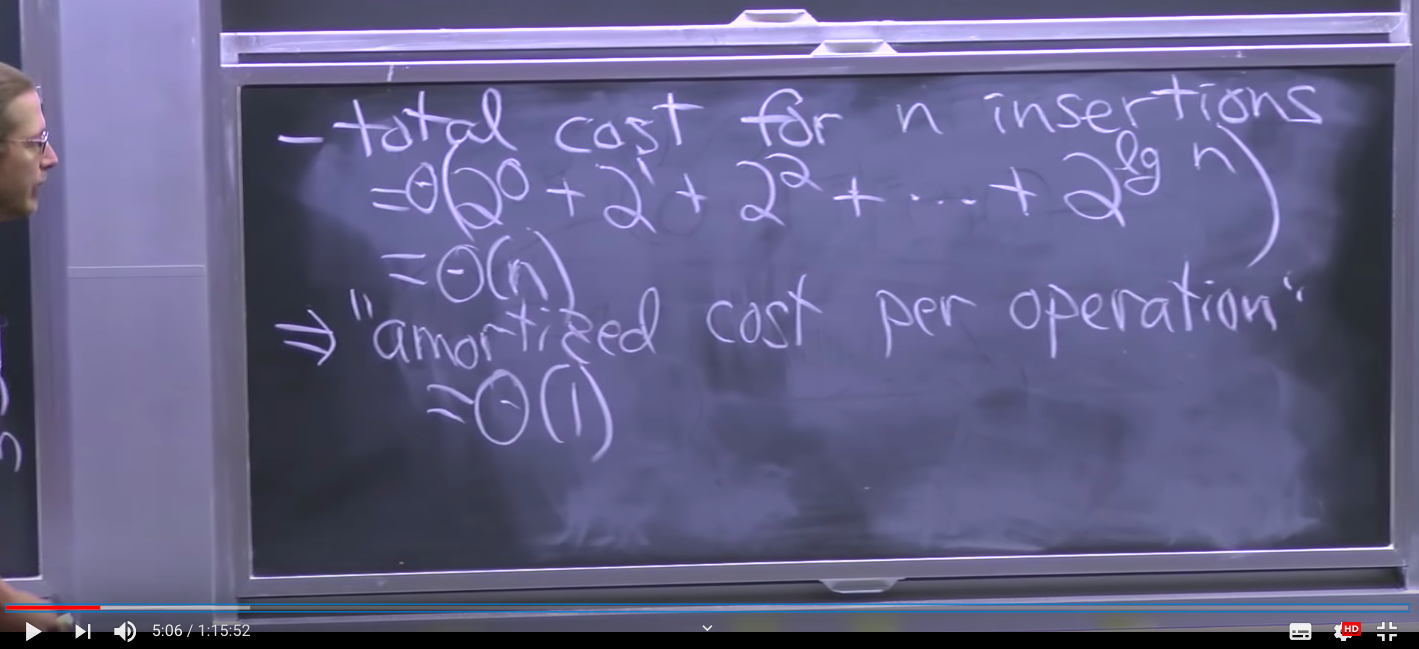 - total cost for n insertions
= Θ(2⁰ + 2¹ + 2² + ... + 2^lg n)
= Θ(n)
⇒ "amortized cost per operation"
= Θ(1)
5:06 / 1:15:52
HD